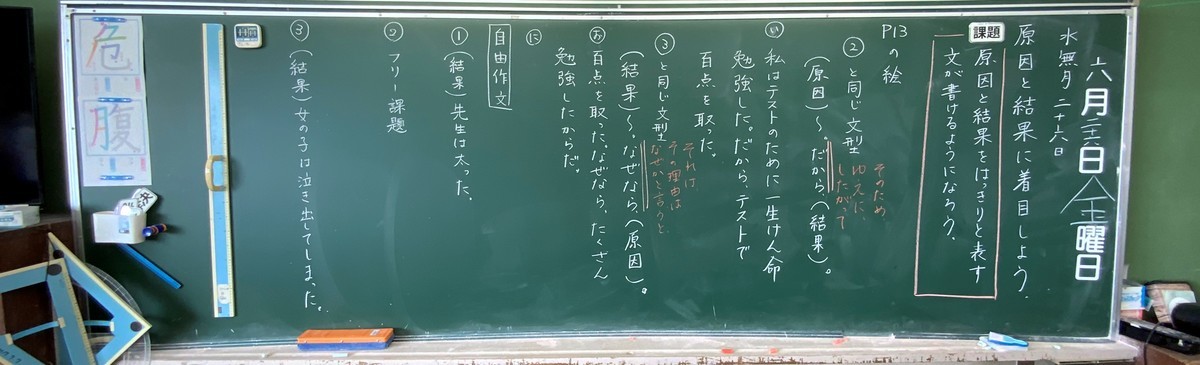 六月二十六日(金)曜日
水無月 二十六日
原因と結果に着目しよう。
課題
原因と結果をはっきりと表す
文が書けるようになろう。
P13の絵
②と同じ文型
(原因)~。だから、(結果)。
そのため
ゆえに、
したがって
い 私はテストのために一生けん命
勉強した。だから、テストで
百点を取った。
③と同じ文型
(結果)~。なぜなら、(原因)。
それは
その理由は
なぜかと言うと
お 百点を取った、なぜなら、たくさん
勉強したからだ。
に
自由作文
① (結果)先生は太った。
② フリー課題
③ (結果)女の子は泣き出してしまった。
危
腹